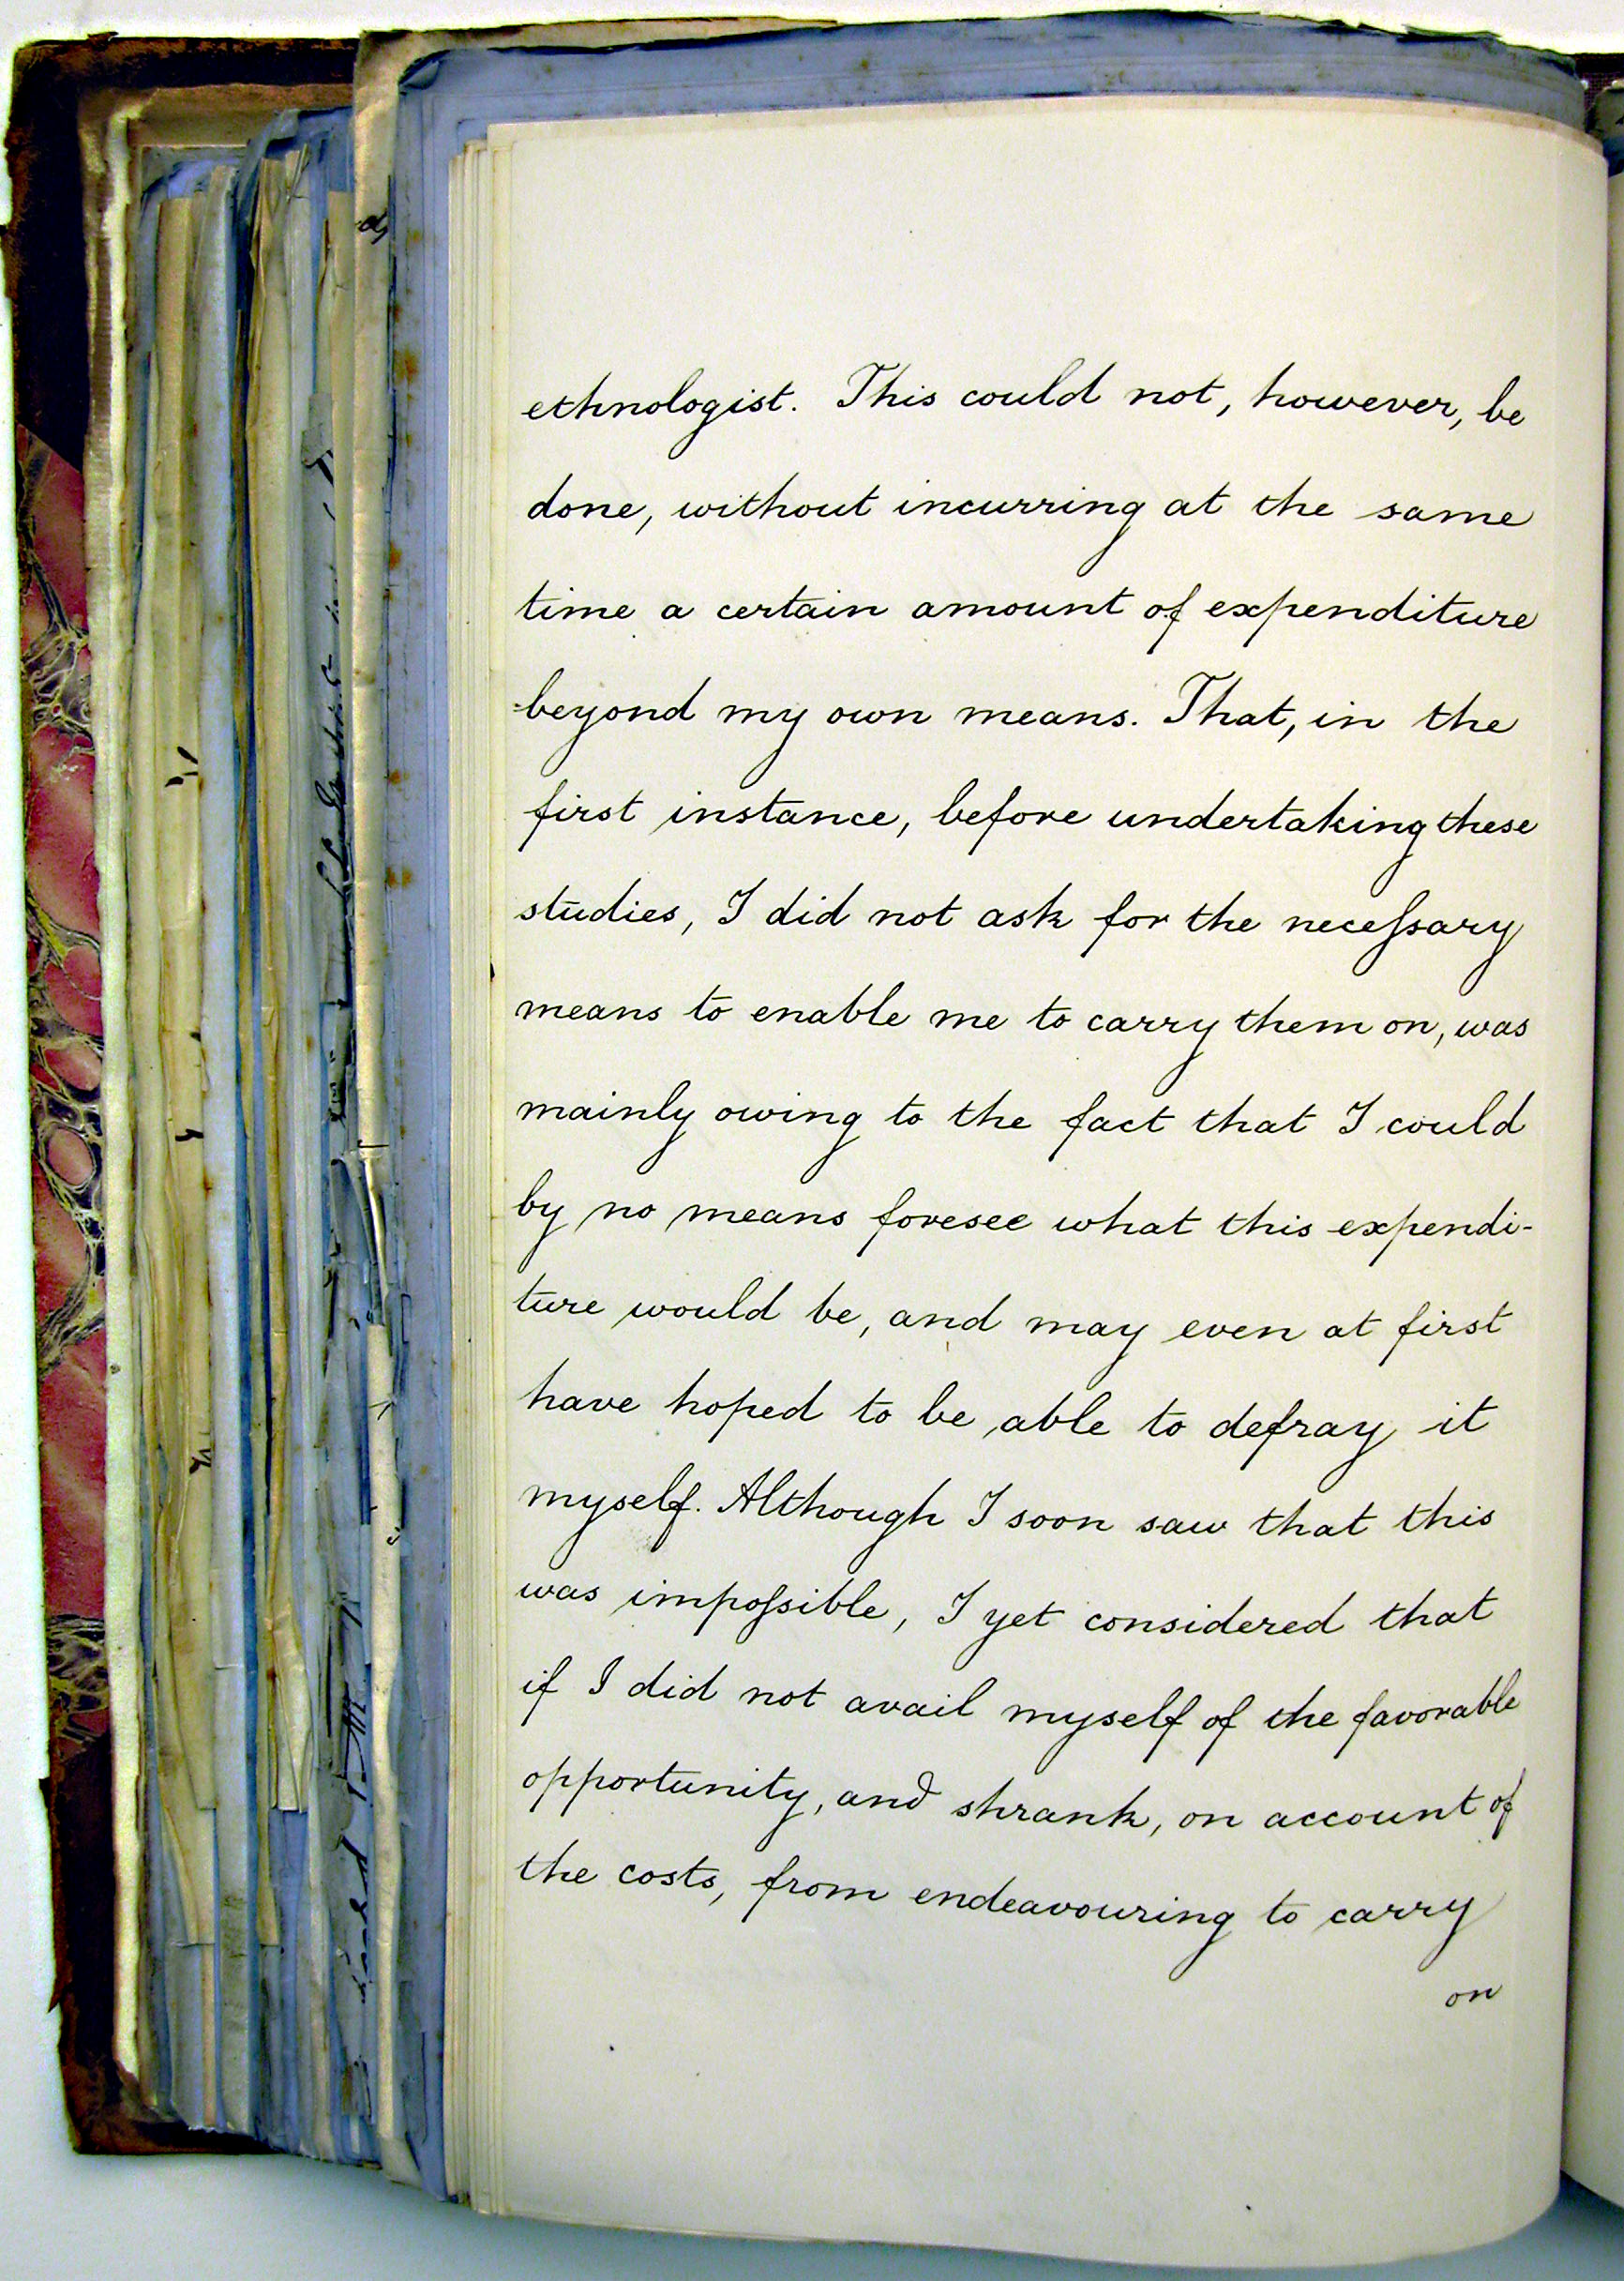 ethnologist. This could not, however, be
done, without incurring at the same
time a certain amount of expenditure
beyond my own means. That, in the
first instance, before undertaking these
studies, I did not ask for the neceſsary
means to enable me to carry them on, was
mainly owing to the fact that I could
by no means foresee what this expendi-
ture would be, and may even at first
have hoped to be able to defray it
myself. Although I soon saw that this
was impoſsible, I yet considered that
if I did not avail myself of the favorable
opportunity, and shrank, on account of
the costs, from endeavouring to carry
on